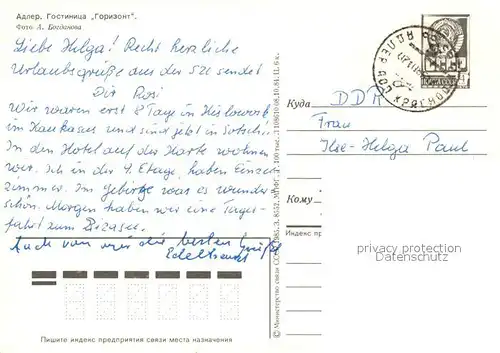 Адлер. Гостиница „Горизонт".
Фото А. Богданова
Liebe Helga! Recht herzliche
Urlaubsgrüße aus der SU sendet
Dir Rosi
Wir waren erst 8 Tage in Kislowodsk
im Kaukasus und sind jetzt in Sotschi.
In dem Hotel auf der Karte wohnen
wir. Ich in der 4. Etage, haben Einzel
zimmer. Im Gebirge war es wunder
schön. Morgen haben wir eine Tages-
fahrt zum
Auch von mir die besten Grüße
Edeltraut
Куда
DDR
Frau
Ilse-Helga Paul
Кому
Индекс пр
privacy protection
Datenschutz
Пишите индекс предприятия связи места назначения
© Министерство связи СССР.